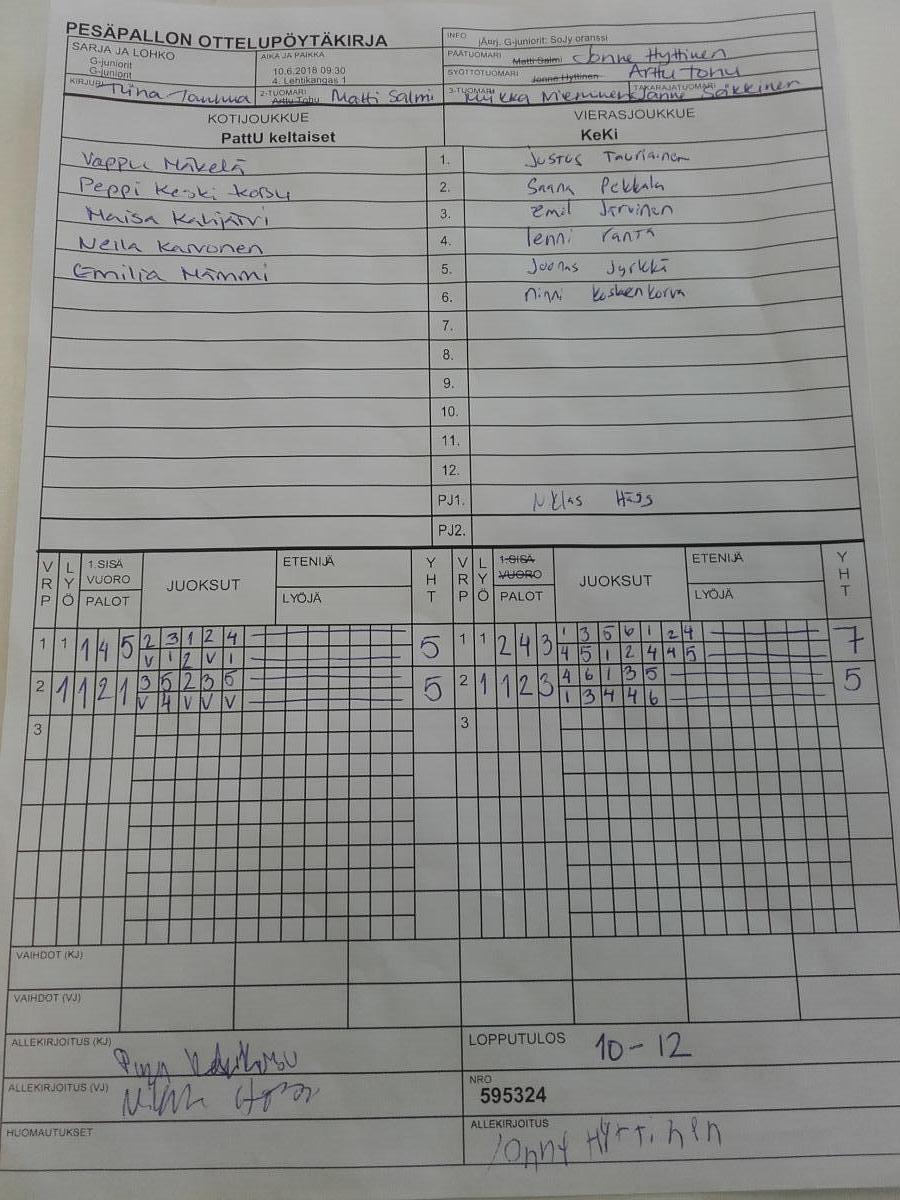 PESÄPALLON OTTELUPÖYTÄKIRJA
INFO jÄurj. G-juniorit: SoJy oranssi
SARJA JA LOHKO G-juniorit G-juniorit
AIKA JA PAIKKA 10.6.2018 09:30 4. Lehtikangas 1
PÄÄTUOMARI Matti Salmi Jonne Hyttinen
SYÖTTÖTUOMARI Jonne Hyttinen Arttu Tohu
KIRJURI Tiina
2-TUOMARI Arttu Tohu Matti Salmi
3-TUOMARI Miikka Nieminen
TAKARAJATUOMARI Janne Säkkinen
KOTIJOUKKUE VIERASJOUKKUE
PattU keltaiset KeKi
Vappu Mäkelä 1. Justus Tauriainen
Peppi Keski-Korsu 2. Saana Pekkala
Maisa Kalijärvi 3. Emil Järvinen
Nella Karvonen 4. lenni ranta
Emilia Mämmi 5. Joonas Jyrkkä
6. ninni koskenkorva
7.
8.
9.
10.
11.
12.
PJ1. Niklas Häss
PJ2.
VRP LYÖ 1.SISÄ VUORO PALOT JUOKSUT ETENIJÄ LYÖJÄ YHT VRP LYÖ 1.SISÄ VUORO PALOT JUOKSUT ETENIJÄ LYÖJÄ YHT
1 1 1 4 5 2 3 1 2 4 5 1 1 2 4 3 1 3 5 6 1 2 4 7
V 1 2 V 1 4 5 1 2 4 4 5
2 1 1 2 1 3 5 2 3 5 5 2 1 1 2 3 4 6 1 3 5 5
V 4 V V V 1 3 4 4 6
3 3
VAIHDOT (KJ)
VAIHDOT (VJ)
ALLEKIRJOITUS (KJ)
LOPPUTULOS 10-12
ALLEKIRJOITUS (VJ)
NRO 595324
HUOMAUTUKSET
ALLEKIRJOITUS Jonny Hyttinen